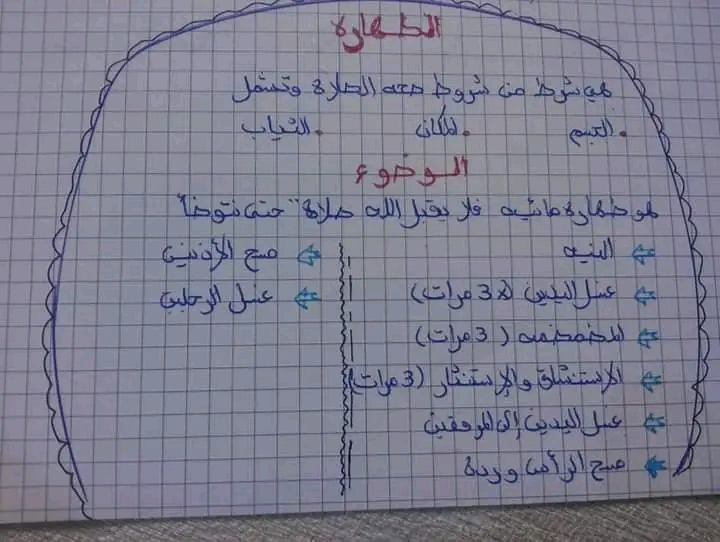 الطهارة
هي شرط من شروط صحه الصلاة وتشمل
. الجسم . المكان . الثياب
الوضوء
هو طهاره مائيه فلا يقبل الله صلاة "حتى نتوضا"
⇐ النيه
⇐ غسل اليدين (3 مرات)
⇐ المضمضمه (3 مرات)
⇐ الإستنشاق والإستنثار (3 مرات)
⇐ غسل اليدين إلى المرفقين
⇐ مسح الرأس وردة
⇐ مسح الأذنين
⇐ غسل الرجلين